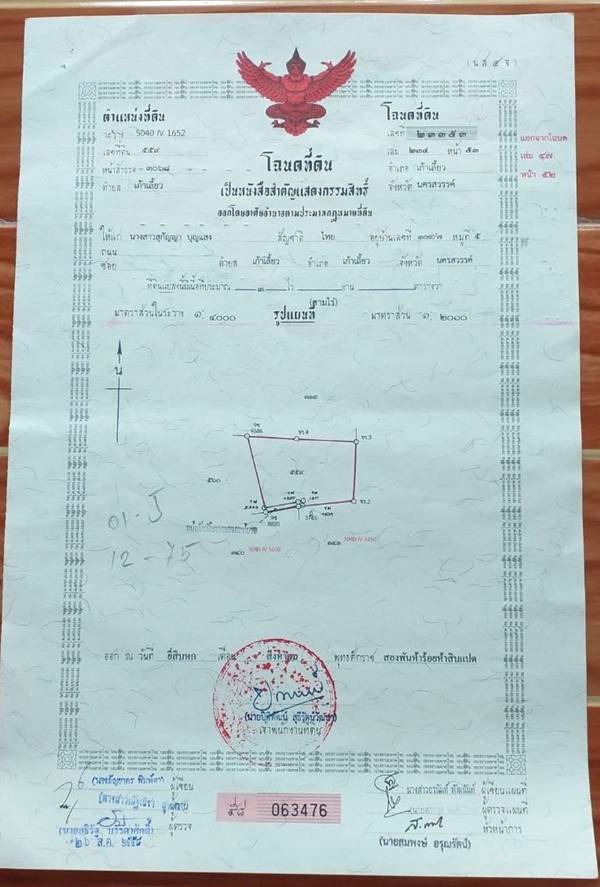 (น.ส. ๔ จ.)
ตำแหน่งที่ดิน
ระวาง 5040 IV 1652
เลขที่ดิน ๕๕๙
หน้าสำรวจ ๓๐๖๘
ตำบล เก้าเลี้ยว
โฉนดที่ดิน
เลขที่ ๒๓๓๕๓
เล่ม ๒๓๔ หน้า ๕๓
อำเภอ เก้าเลี้ยว
จังหวัด นครสวรรค์
แยกจากโฉนด
เล่ม ๔๗
หน้า ๕๒
โฉนดที่ดิน
เป็นหนังสือสำคัญแสดงกรรมสิทธิ์
ออกโดยอาศัยอำนาจตามประมวลกฎหมายที่ดิน
ให้แก่ นางสาวสุกัญญา บุญแสง สัญชาติ ไทย อยู่บ้านเลขที่ ๑๐๙/๗ หมู่ที่ ๕
ถนน
ซอย ตำบล เก้าเลี้ยว อำเภอ เก้าเลี้ยว จังหวัด นครสวรรค์
ที่ดินแปลงนี้มีเนื้อที่ประมาณ ๓ ไร่ งาน ตารางวา
(สามไร่)
มาตราส่วนในระวาง ๑: ๔๐๐๐ รูปแผนที่ มาตราส่วน ๑: ๒๐๐๐
น
9386
ชว.4
ชว.3
๕๖๐
๕๕๙
ชว.2
8820
01-5
12-75
5040 IV 3450
5040 IV 3450
ออก ณ วันที่ ยี่สิบหก เดือน สิงหาคม พุทธศักราช สองพันห้าร้อยห้าสิบแปด
เจ้าพนักงานที่ดิน
ผู้เขียน
ผู้ตรวจ
๒๖ ส.ค. ๒๕๕๘
๕๘ 063476
ผู้เขียนแผนที่
ผู้ตรวจแผนที่
หัวหน้าการ
(นายสมพงษ์ อรุณรัตน์)